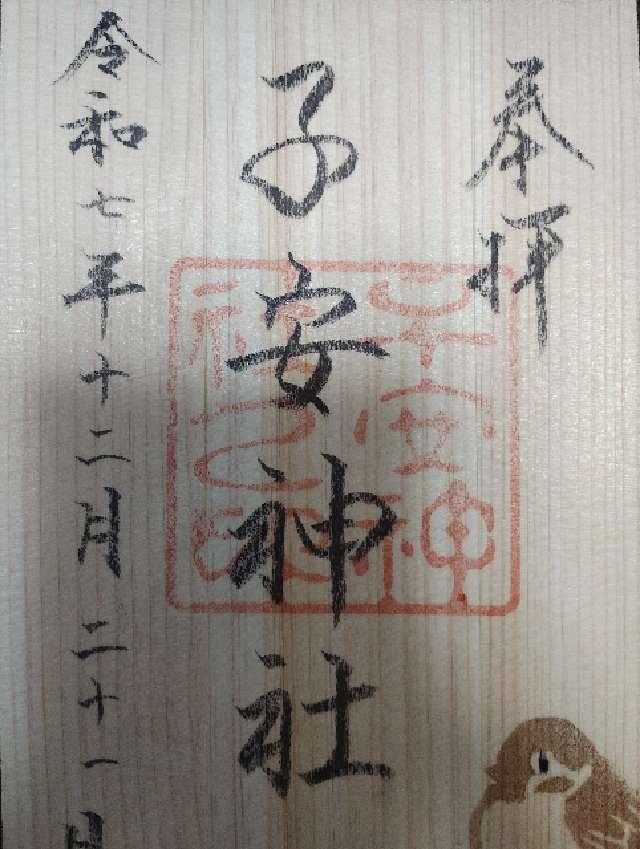 奉拝
子安神社
子安神
社之印
令和七年十二月二十一日